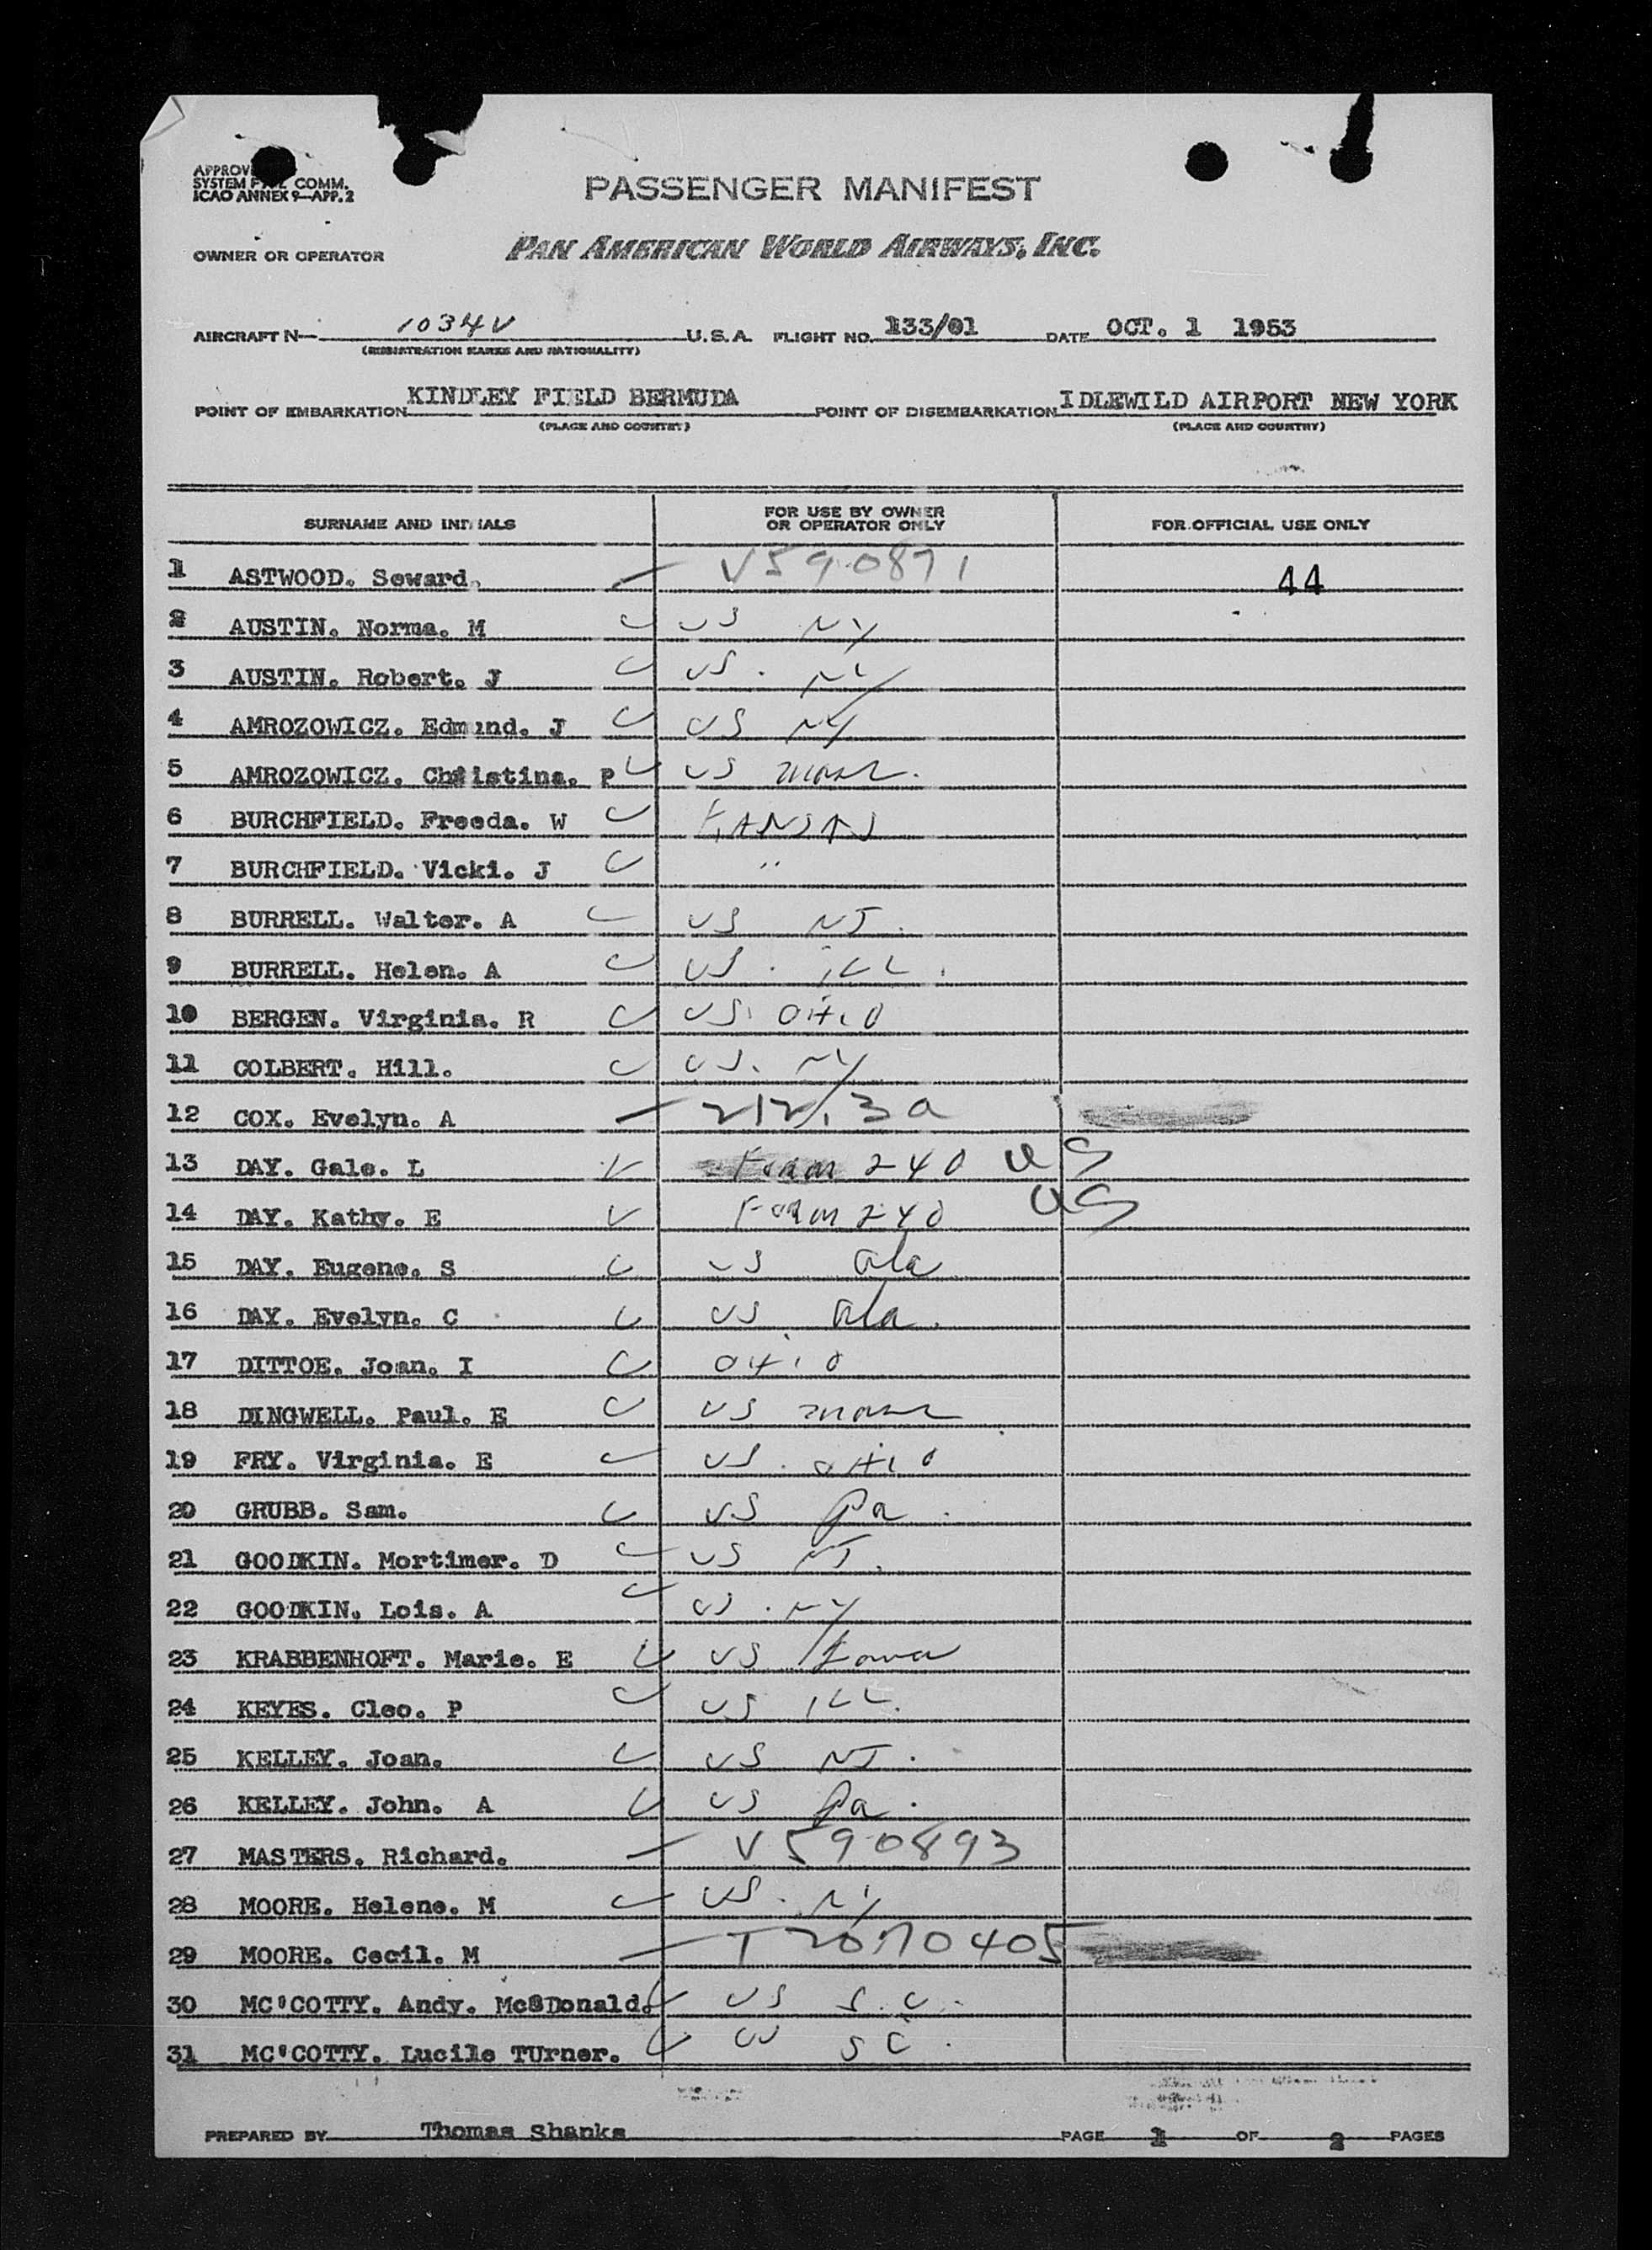 SYSTEM COMM.
ICAO ANNEX 9-APP. 2
PASSENGER MANIFEST
OWNER OR OPERATOR PAN AMERICAN WORLD AIRWAYS, INC.
AIRCRAFT N- 1034V U.S.A. FLIGHT NO. 133/01 DATE OCT. 1 1953
(REGISTRATION MARKS AND NATIONALITY)
POINT OF EMBARKATION KINDLEY FIELD BERMUDA POINT OF DISEMBARKATION IDLEWILD AIRPORT NEW YORK
(PLACE AND COUNTRY) (PLACE AND COUNTRY)
SURNAME AND INITIALS FOR USE BY OWNER OR OPERATOR ONLY FOR OFFICIAL USE ONLY
1 ASTWOOD. Seward. V590871 44
2 AUSTIN. Norma. M US NY
3 AUSTIN. Robert. J US. NY
4 AMROZOWICZ. Edmund. J US NY
5 AMROZOWICZ. Christina. P US mass.
6 BURCHFIELD. Freeda. W KANSAS
7 BURCHFIELD. Vicki. J "
8 BURRELL. Walter. A US NJ.
9 BURRELL. Helen. A US. ILL.
10 BERGEN. Virginia. R US. OHIO
11 COLBERT. Hill. US. NY
12 COX. Evelyn. A 212.3a
13 DAY. Gale. L Form 240 US
14 DAY. Kathy. E Form 240 US
15 DAY. Eugene. S US ala
16 DAY. Evelyn. C US ala.
17 DITTOE. Joan. I OHIO
18 DINGWELL. Paul. E US mass
19 FRY. Virginia. E US. OHIO
20 GRUBB. Sam. US Pa.
21 GOODKIN. Mortimer. D US NJ.
22 GOODKIN. Lois. A US. NY
23 KRABBENHOFT. Marie. E US Iowa
24 KEYES. Cleo. P US ILL.
25 KELLEY. Joan. US NJ.
26 KELLEY. John. A US Pa.
27 MASTERS. Richard. V590893
28 MOORE. Helene. M US. NY
29 MOORE. Cecil. M T2070405
30 MC'COTTY. Andy. McDonald. US S.C.
31 MC'COTTY. Lucile TUrner. US SC.
PREPARED BY Thomas Shanks PAGE 1 OF 2 PAGES